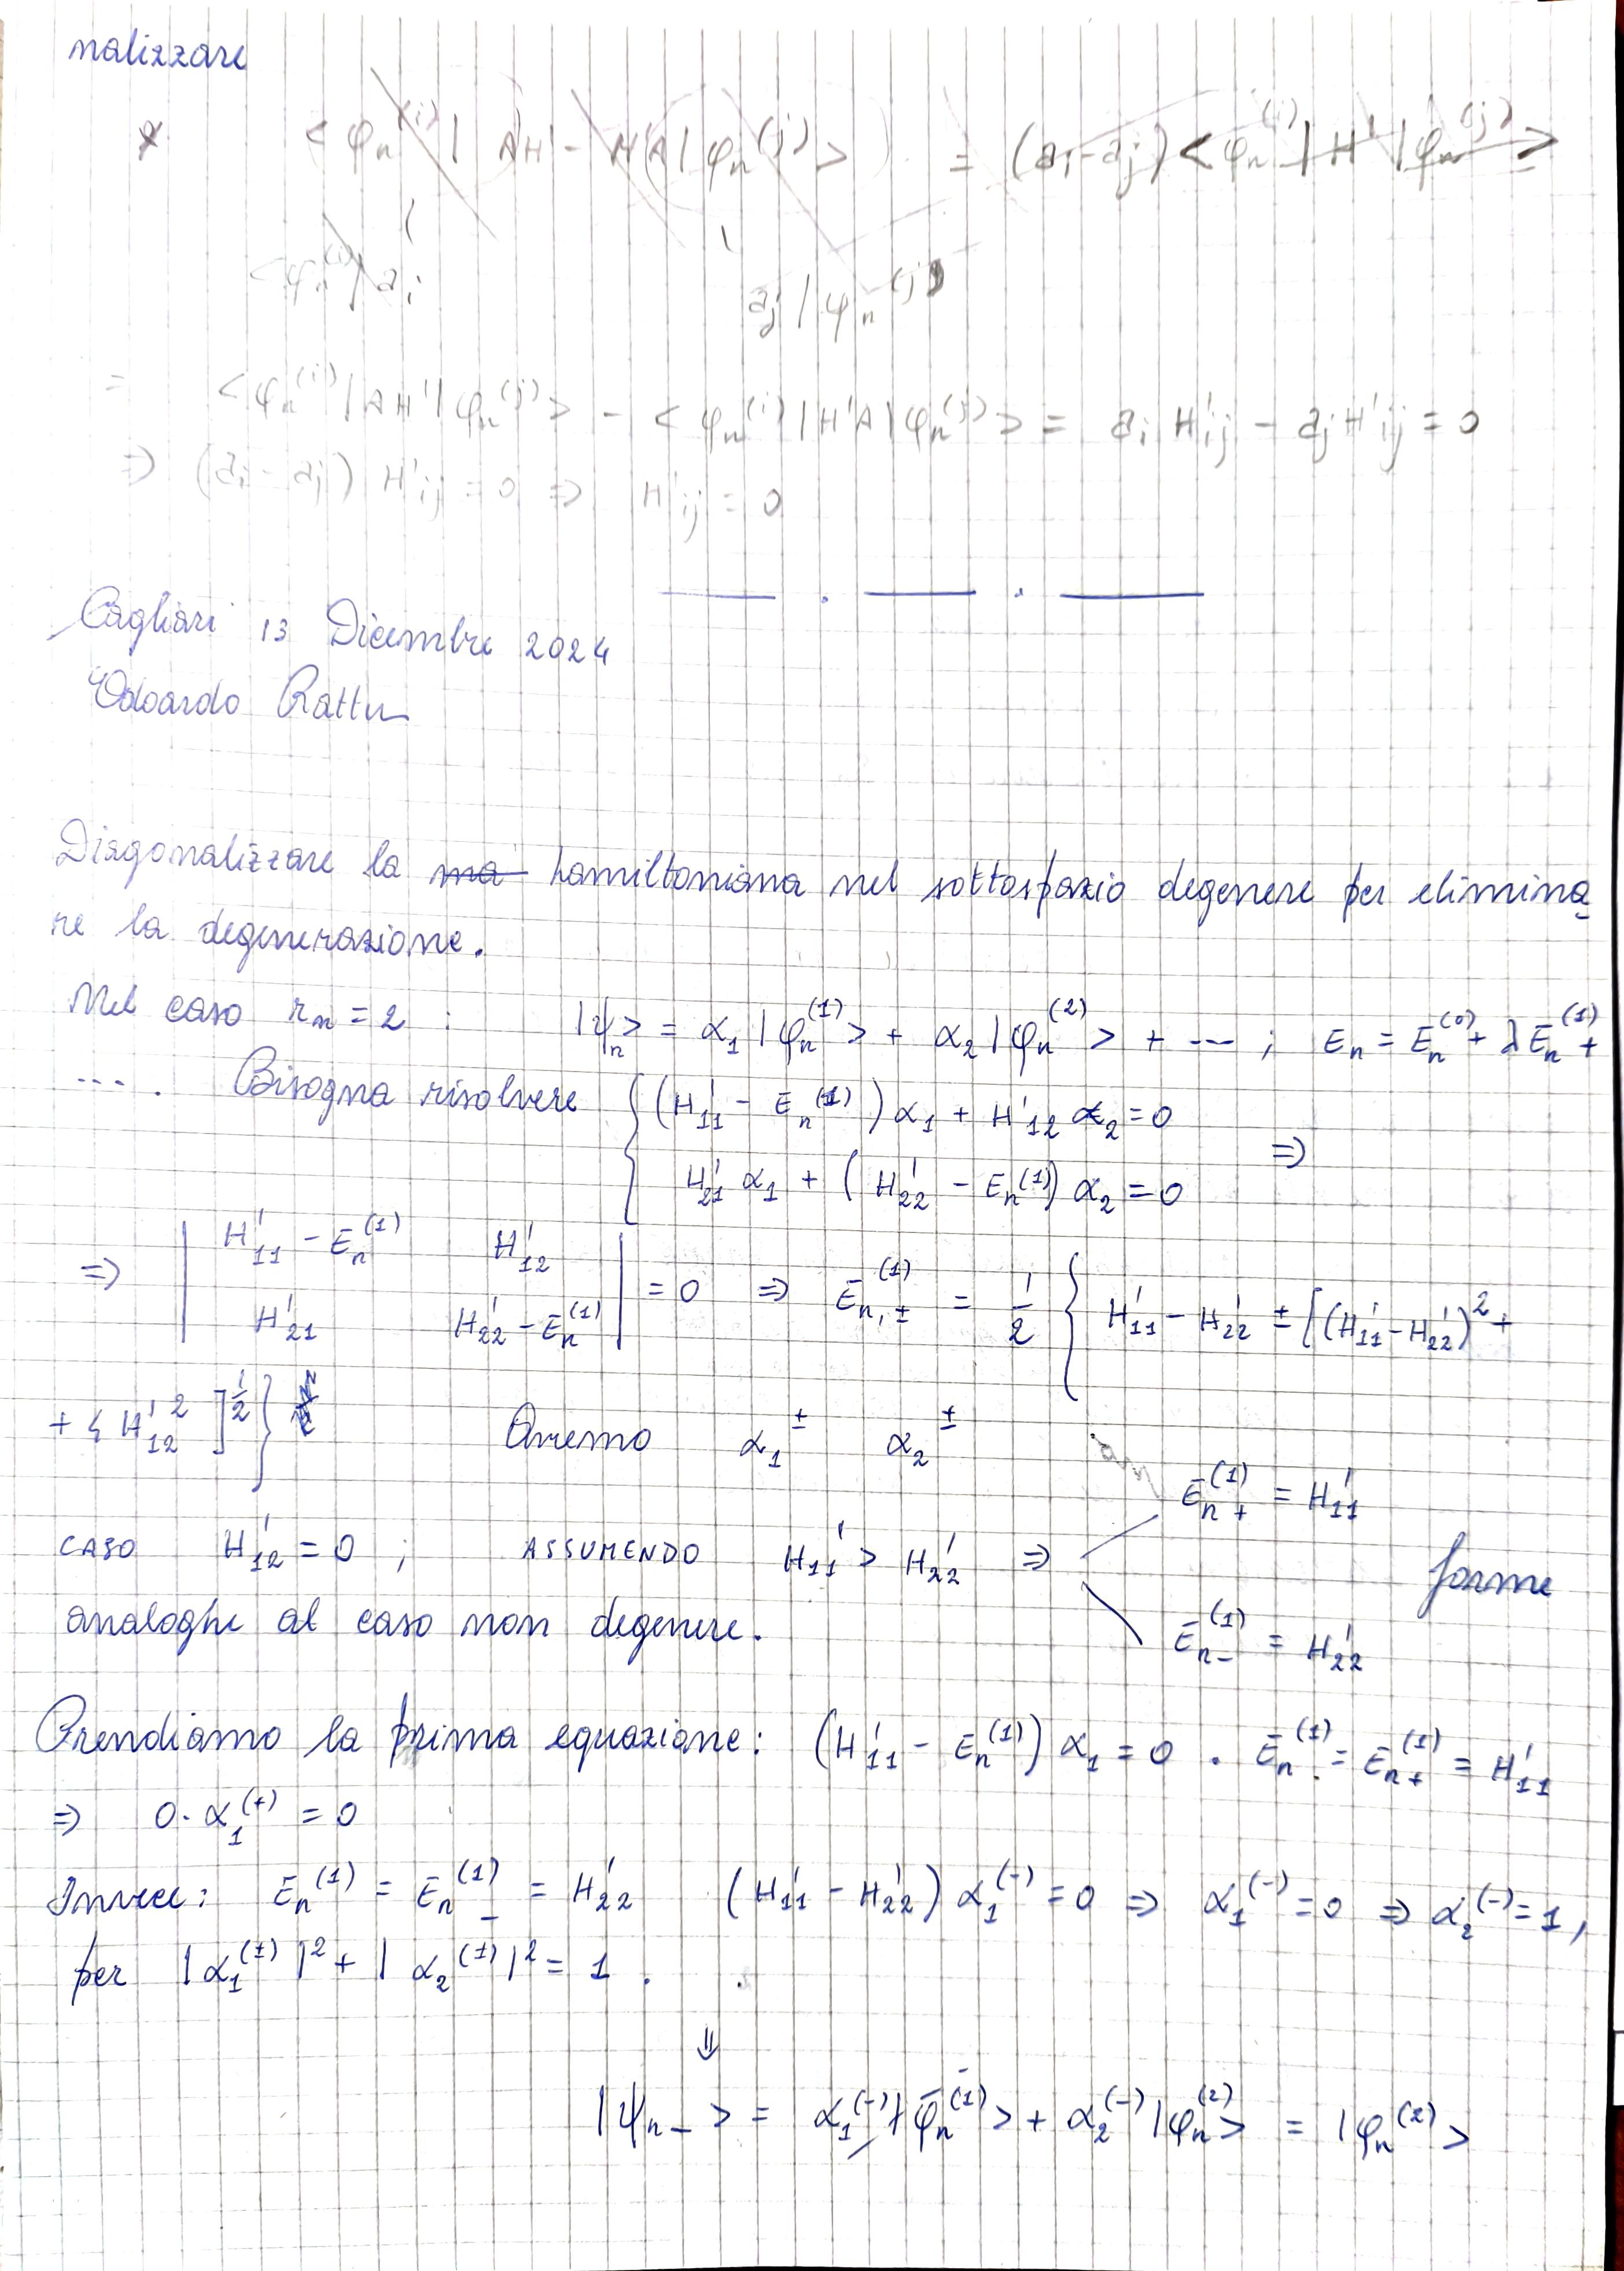 nalizzare
* < φₙ⁽ⁱ⁾ | AH' - H'A | φₙ⁽ʲ⁾ > = (aᵢ - aⱼ) < φₙ⁽ⁱ⁾ | H' | φₙ⁽ʲ⁾ >
< φₙ⁽ⁱ⁾ | aᵢ aⱼ | φₙ⁽ʲ⁾
= < φₙ⁽ⁱ⁾ | AH' | φₙ⁽ʲ⁾ > - < φₙ⁽ⁱ⁾ | H'A | φₙ⁽ʲ⁾ > = aᵢ H'ᵢⱼ - aⱼ H'ᵢⱼ = 0
⇒ (aᵢ - aⱼ) H'ᵢⱼ = 0 ⇒ H'ᵢⱼ = 0
Cagliari 13 Dicembre 2024
Edoardo Rattu
Diagonalizzare la ma hamiltoniana nel sottospazio degenere per elimina
re la degenerazione.
Nel caso rₙ = 2 : |ψₙ> = α₁ |φₙ⁽¹⁾> + α₂ |φₙ⁽²⁾> + --- ; Eₙ = Eₙ⁽⁰⁾ + λ Eₙ⁽¹⁾ +
--- . Bisogna risolvere { (H'₁₁ - Eₙ⁽¹⁾) α₁ + H'₁₂ α₂ = 0
H'₂₁ α₁ + (H'₂₂ - Eₙ⁽¹⁾) α₂ = 0 ⇒
⇒ | H'₁₁ - Eₙ⁽¹⁾ H'₁₂
H'₂₁ H'₂₂ - Eₙ⁽¹⁾ | = 0 ⇒ Eₙ,±⁽¹⁾ = 1/2 { H'₁₁ - H'₂₂ ± [(H'₁₁ - H'₂₂)² +
+ 4 H'₁₂² ]^1/2 } Avremo α₁^± α₂^±
Eₙ₊⁽¹⁾ = H'₁₁
CASO H'₁₂ = 0 ; ASSUMENDO H'₁₁ > H'₂₂ ⇒ forme
analoghe al caso non degenere. Eₙ₋⁽¹⁾ = H'₂₂
Prendiamo la prima equazione: (H'₁₁ - Eₙ⁽¹⁾) α₁ = 0 . Eₙ⁽¹⁾ = Eₙ₊⁽¹⁾ = H'₁₁
⇒ 0 · α₁⁽⁺⁾ = 0
Invece: Eₙ⁽¹⁾ = Eₙ₋⁽¹⁾ = H'₂₂ (H'₁₁ - H'₂₂) α₁⁽⁻⁾ = 0 ⇒ α₁⁽⁻⁾ = 0 ⇒ α₂⁽⁻⁾ = 1,
per |α₁^(±)|² + |α₂^(±)|² = 1 .
⇓
|ψₙ₋> = α₁⁽⁻⁾ |φₙ⁽¹⁾> + α₂⁽⁻⁾ |φₙ⁽²⁾> = |φₙ⁽²⁾>